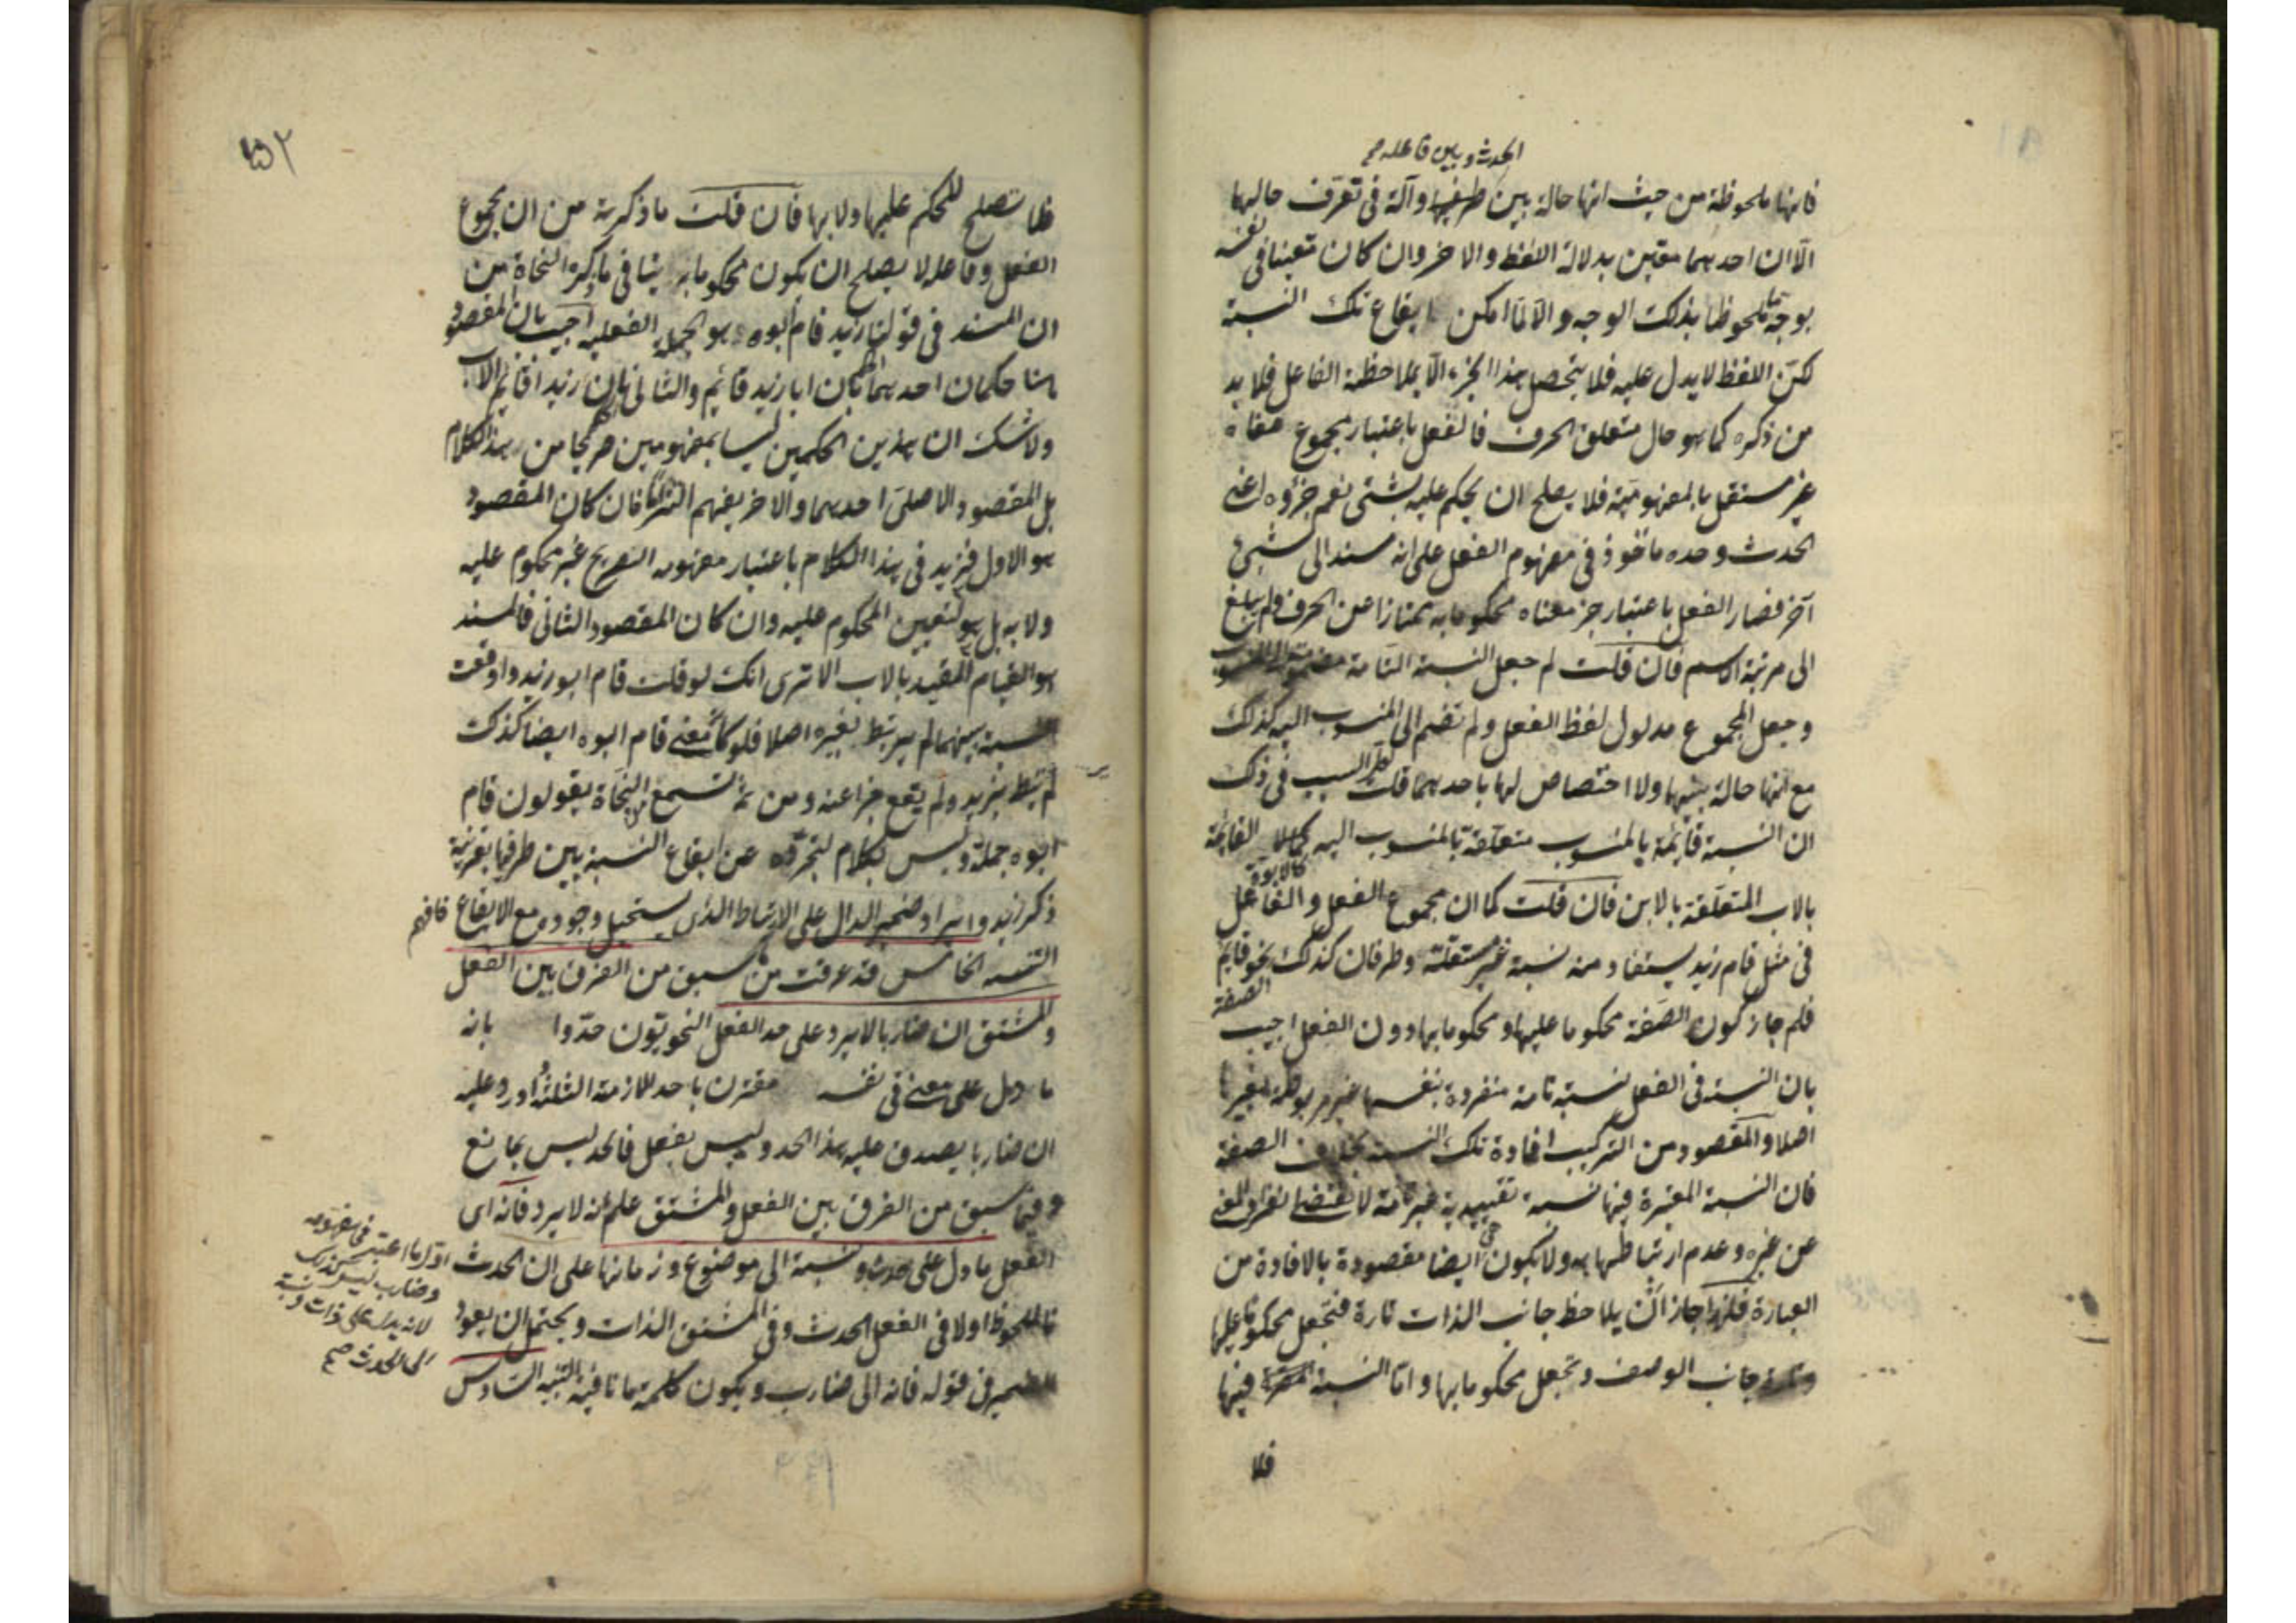 الحدث وبين فاعله صح
فانها ملحوظة من حيث انها حالة بين طرفيها وآلة في تعرف حالهما
الا ان احدهما متعين بدلالة اللفظ والاخر وان كان متعينا في نفسه
بوجه ما ملحوظا بذلك الوجه والا لما امكن ايقاع تلك النسبة
لكن اللفظ لا يدل عليه فلا يتحصل هذا الجزء الا بملاحظة الفاعل فلا بد
من ذكره كما هو حال متعلق الحرف فالفعل باعتبار مجموع معناه
غير مستقل بالمفهومية فلا يصلح ان يحكم عليه بشئ نعم جزؤه اعنى
الحدث وحده ماخوذ في مفهوم الفعل على انه مسند الى شئ
آخر فصار الفعل باعتبار جزء معناه محكوما به ممتازا عن الحرف ولم يبلغ
الى مرتبة الاسم فان قلت لم جعل النسبة التامة
وجعل المجموع مدلول لفظ الفعل ولم تضم الى المنسوب اليه كذلك
مع انها حالة بينهما ولا اختصاص لها باحدهما قلت لعل السبب في ذلك
ان النسبة قائمة بالمنسوب متعلقة بالمنسوب اليه كالابوة القائمة
بالاب المتعلقة بالابن فان قلت كما ان مجموع الفعل والفاعل
في مثل قام زيد يستفاد منه نسبة غير مستقلة وطرفان كذلك نحو قايم
فلم جاز كون الصفة محكوما عليها ومحكوما بها دون الفعل اجيب
بان النسبة في الفعل نسبة تامة منفردة بنفسها غير مربوطة بغيرها
اصلا والمقصود من التركيب افادة تلك النسبة بخلاف الصفة
فان النسبة المعتبرة فيها نسبة تقييدية غير تامة لا تقتضى انفراد المعنى
عن غيره وعدم ارتباطها به ولا يكون هي ايضا مقصودة بالافادة من
العبارة فلهذا جاز ان يلاحظ جانب الذات تارة فتجعل محكوما عليها
وتارة جانب الوصف وتجعل محكوما بها واما النسبة المعتبرة فيها
فلا
فلا تصلح للحكم عليها ولا بها فان قلت ما ذكرته من ان مجموع
الفعل وفاعله لا يصلح ان يكون محكوما به ينافى ما ذكره النحاة من
ان المسند في قولنا زيد قام ابوه هو الجملة الفعلية اجيب بان المقصود
هنا حكمان احدهما الحكم بان ابا زيد قائم والثانى بان زيدا قائم الاب
ولا شك ان هذين الحكمين ليسا بمفهومين صريحا من هذا الكلام
بل المقصود الاصلى احدهما والاخر يفهم التزاما فان كان المقصود
هو الاول فزيد في هذا الكلام باعتبار مفهومه الصريح غير محكوم عليه
ولا به بل هو لتعيين المحكوم عليه وان كان المقصود الثانى فالمسند
هو القيام المقيد بالاب الا ترى انك لو قلت قام ابو زيد واوقعت
النسبة بينهما لم يرتبط بغيره اصلا فلو كان معنى قام ابوه ايضا كذلك
لم يرتبط بزيد ولم يقع خبرا عنه ومن ثم تسمع النحاة يقولون قام
ابوه جملة وليس بكلام لتجرده عن ايقاع النسبة بين طرفيها بقرينة
ذكر زيد وايراد ضمير الدال على الارتباط الذى يستحيل وجوده مع الايقاع فافهم
التنبيه الخامس قد عرفت من ما سبق من الفرق بين الفعل
والمشتق ان ضاربا لا يرد على حد الفعل النحويون حدوا بانه
ما دل على معنى في نفسه مقترن باحد الازمنة الثلثة اورد عليه
ان ضاربا يصدق عليه هذا الحد وليس بفعل فالحد ليس بمانع
وفيما سبق من الفرق بين الفعل والمشتق علم انه لا يرد فانه اى
الفعل ما دل على حدث ونسبة الى موضوع وزمانها على ان الحدث اول ما اعتبر في مفهومه
وضارب ليس كذلك
لانه يدل على ذات ونسبة
الى الحدث صح
فالملحوظ اولا في الفعل الحدث وفي المشتق الذات ويحتمل ان يعود
الضمير في قوله فانه الى ضارب ويكون كلمة ما نافية التنبيه السادس